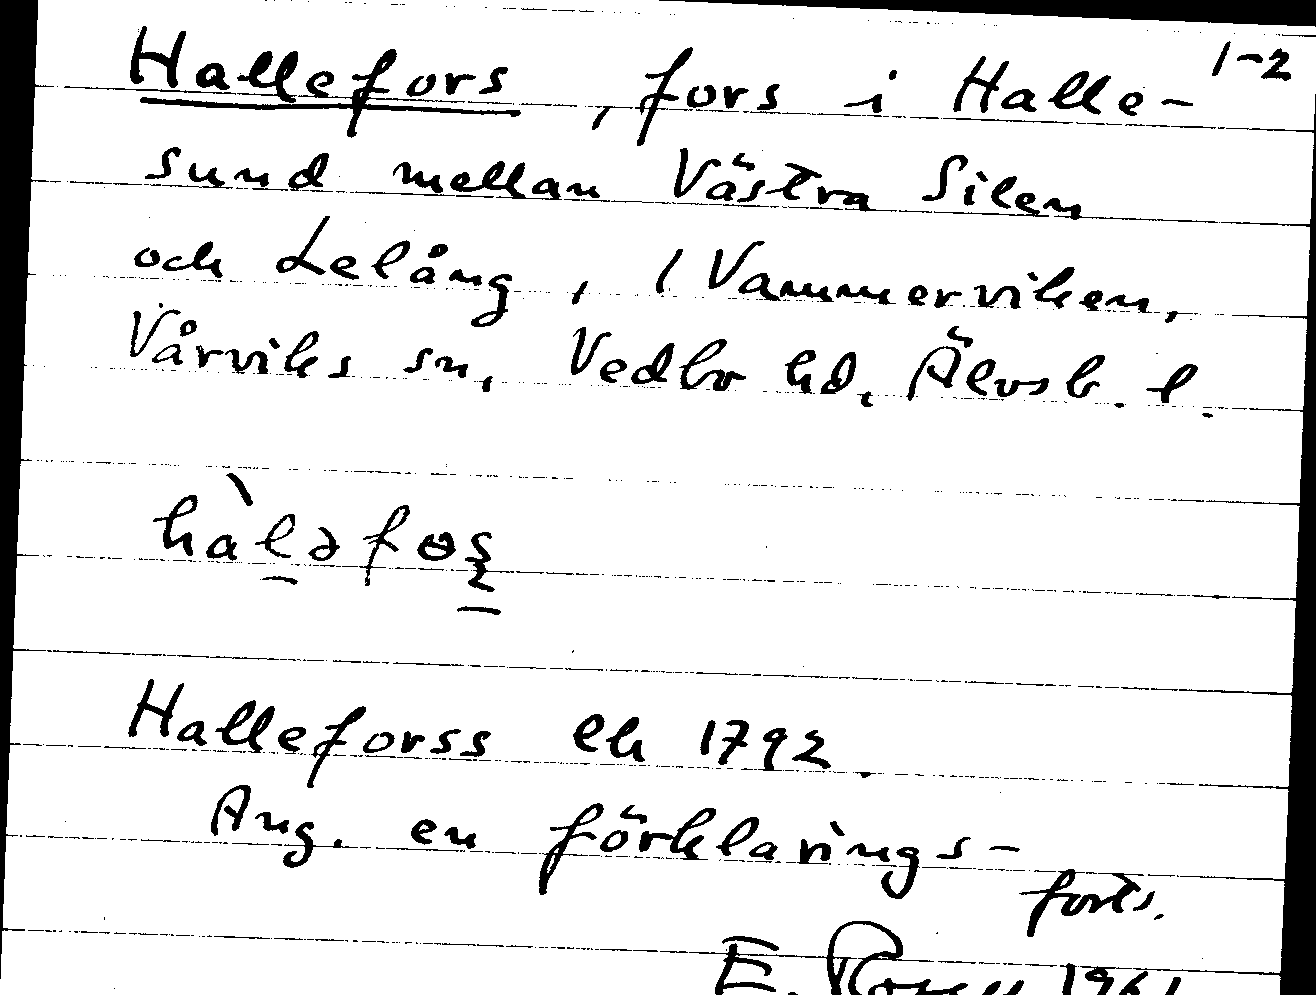 1-2
Hallefors, fors i Halle-
sund mellan Västra Silen
och Lelång, / Vammerviken,
Vårviks sn, Vedbo hd, Älvsb. l.
hàl̠əfɵş̠
Halleforss ek 1792.
Ang. en förklarings-
forts.
E. 1961